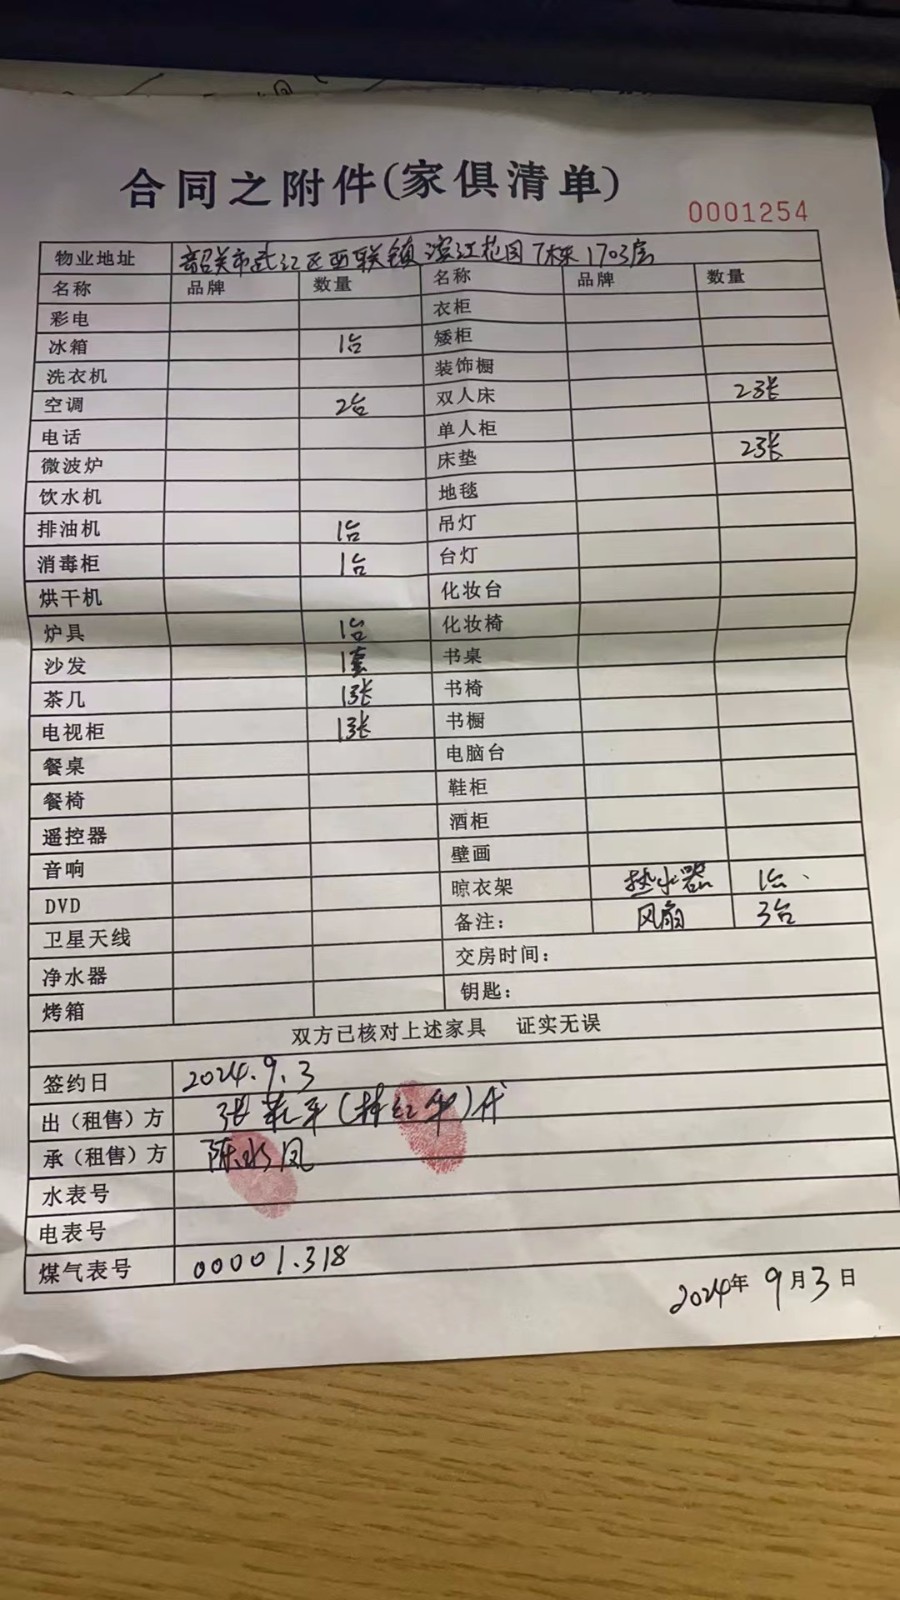 合同之附件(家俱清单)
0001254
物业地址 韶关市武江区西联镇滨江花园7栋1703房
名称 品牌 数量 名称 品牌 数量
彩电 衣柜
冰箱 1台 矮柜
洗衣机 装饰橱
空调 2台 双人床 2张
电话 单人柜
微波炉 床垫 2张
饮水机 地毯
排油机 1台 吊灯
消毒柜 1台 台灯
烘干机 化妆台
炉具 1台 化妆椅
沙发 1套 书桌
茶几 1张 书椅
电视柜 1张 书橱
餐桌 电脑台
餐椅 鞋柜
遥控器 酒柜
音响 壁画
DVD 晾衣架 热水器 1台、
卫星天线 备注: 风扇 3台
净水器 交房时间:
烤箱 钥匙:
双方已核对上述家具 证实无误
签约日 2024.9.3
出（租售）方 张 平( 红 )代
承（租售）方 陈水凤
水表号
电表号
煤气表号 00001.318
2024年9月3日